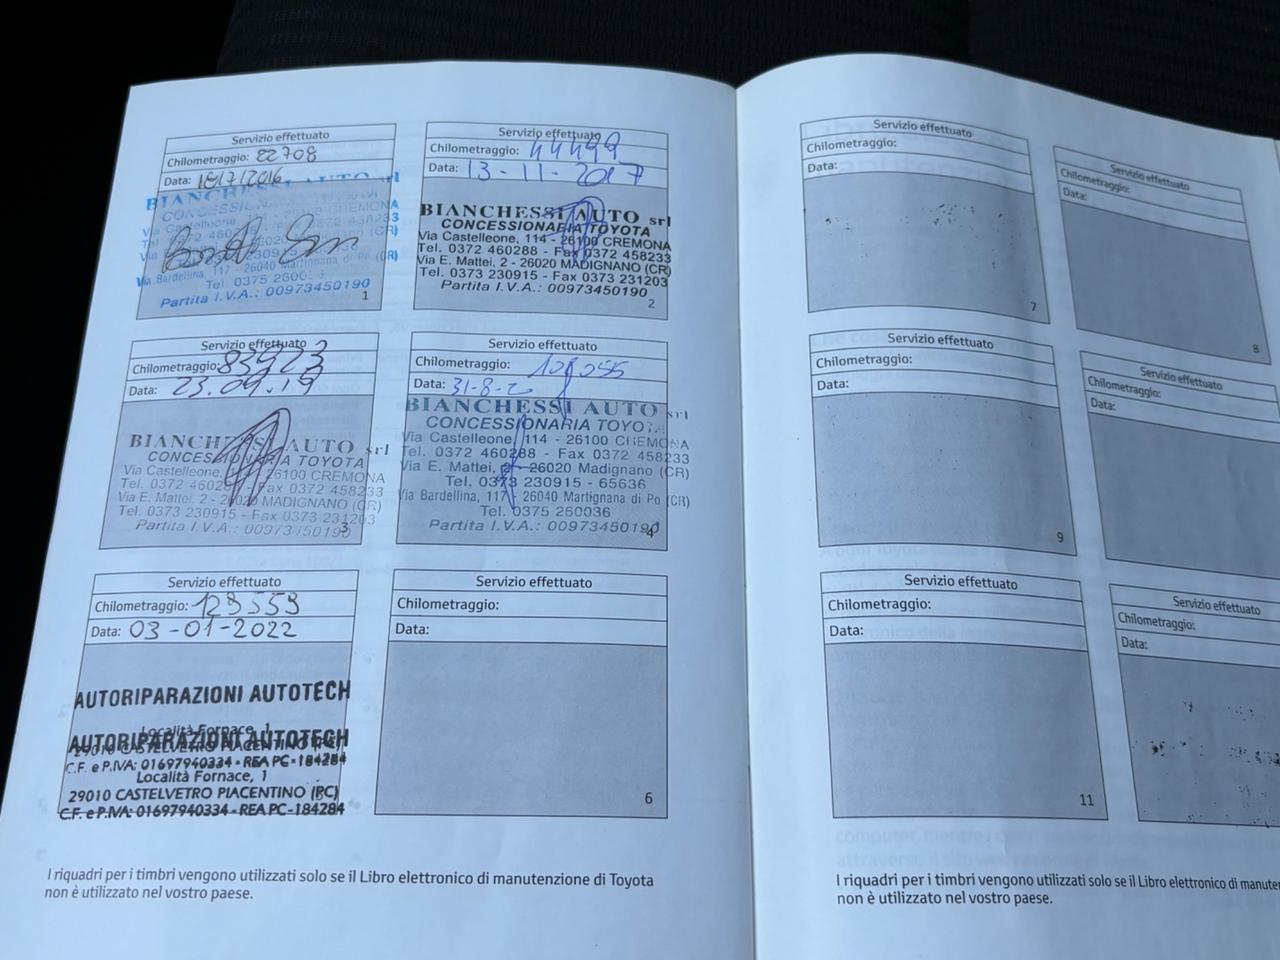 Servizio effettuato
Chilometraggio: 22708
Data: 18/7/2016
BIANCHESSI AUTO srl
Via Bardellina, 117 - 26040 Martignana di Po (CR)
Tel. 0375 2600
Partita I.V.A.: 00973450190
1
Servizio effettuato
Chilometraggio: 44499
Data: 13-11-2017
BIANCHESSI AUTO srl
CONCESSIONARIA TOYOTA
Via Castelleone, 114 - 26100 CREMONA
Tel. 0372 460288 - Fax 0372 458233
Via E. Mattei, 2 - 26020 MADIGNANO (CR)
Tel. 0373 230915 - Fax 0373 231203
Partita I.V.A.: 00973450190
2
Servizio effettuato
Chilometraggio: 83923
Data: 23.09.19
BIANCHESSI AUTO srl
CONCESSIONARIA TOYOTA
Via Castelleone, 26100 CREMONA
Tel. 0372 Fax 0372 458233
Via E. Mattei, 2 - 26020 MADIGNANO (CR)
Tel. 0373 230915 - Fax 0373 231203
Partita I.V.A.: 00973450190
3
Servizio effettuato
Chilometraggio:
Data: 31-8-20
BIANCHESSI AUTO srl
CONCESSIONARIA TOYOTA
Via Castelleone, 114 - 26100 CREMONA
Tel. 0372 460288 - Fax 0372 458233
Via E. Mattei, 2 - 26020 Madignano (CR)
Tel. 0373 230915 - 65636
Via Bardellina, 117 - 26040 Martignana di Po (CR)
Tel. 0375 260036
Partita I.V.A.: 00973450190
4
Servizio effettuato
Chilometraggio: 129559
Data: 03-01-2022
AUTORIPARAZIONI AUTOTECH
Località Fornace, 1
AUTORIPARAZIONI AUTOTECH
29010 CASTELVETRO PIACENTINO (PC)
C.F. e P.IVA: 01697940334 - REA PC-184284
Località Fornace, 1
29010 CASTELVETRO PIACENTINO (PC)
C.F. e P.IVA: 01697940334 - REA PC-184284
Servizio effettuato
Chilometraggio:
Data:
6
I riquadri per i timbri vengono utilizzati solo se il Libro elettronico di manutenzione di Toyota
non è utilizzato nel vostro paese.
Servizio effettuato
Chilometraggio:
Data:
7
Servizio effettuato
Chilometraggio:
Data:
8
Servizio effettuato
Chilometraggio:
Data:
9
Servizio effettuato
Chilometraggio:
Data:
Servizio effettuato
Chilometraggio:
Data:
11
Servizio effettuato
Chilometraggio:
Data:
I riquadri per i timbri vengono utilizzati solo se il Libro elettronico di manute
non è utilizzato nel vostro paese.